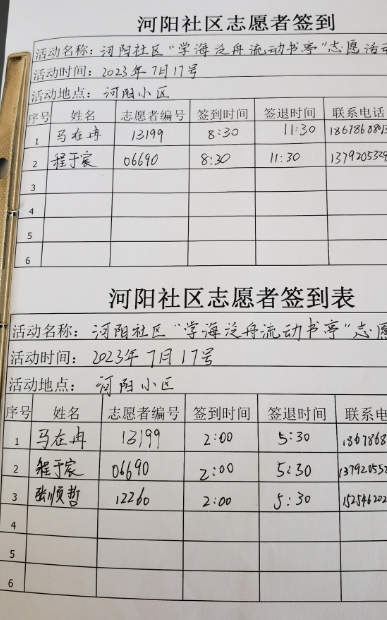 河阳社区志愿者签到
活动名称：河阳社区“学海泛舟流动书亭”志愿活动
活动时间：2023年7月17号
活动地点：河阳小区
序号 姓名 志愿者编号 签到时间 签退时间 联系电话
1 马在冉 13199 8:30 11:30
2 程于宸 06690 8:30 11:30
3
4
5
6
河阳社区志愿者签到表
活动名称：河阳社区“学海泛舟流动书亭”志愿
活动时间：2023年7月17号
活动地点：河阳小区
序号 姓名 志愿者编号 签到时间 签退时间 联系电
1 马在冉 13199 2:00 5:30
2 程于宸 06690 2:00 5:30
3 张顺哲 12260 2:00 5:30
4
5
6